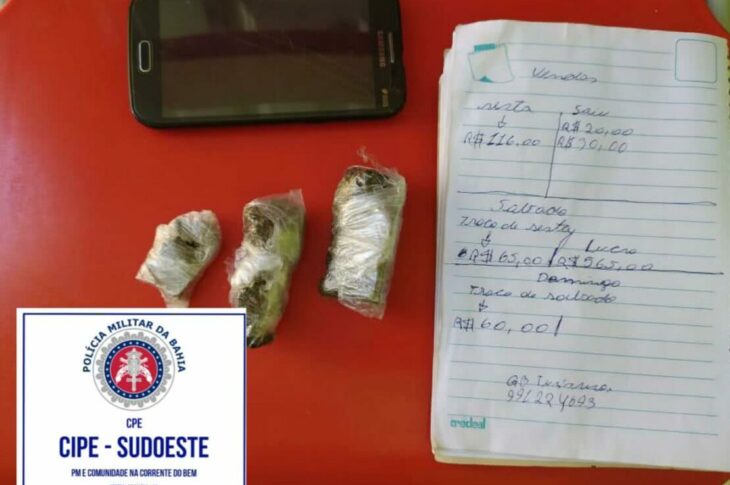 SAMSUNG
Vendas
sexta
Saiu
R$ 116.00
R$ 20,00
R$ 20,00
Sabado
Troco de sexta
Lucro
R$ 65,00
R$ 565,00
Domingo
Troco de sabado
R$ 60,00
credeal
POLÍCIA MILITAR DA BAHIA
CPE
CIPE - SUDOESTE
PM E COMUNIDADE NA CORRENTE DO BEM